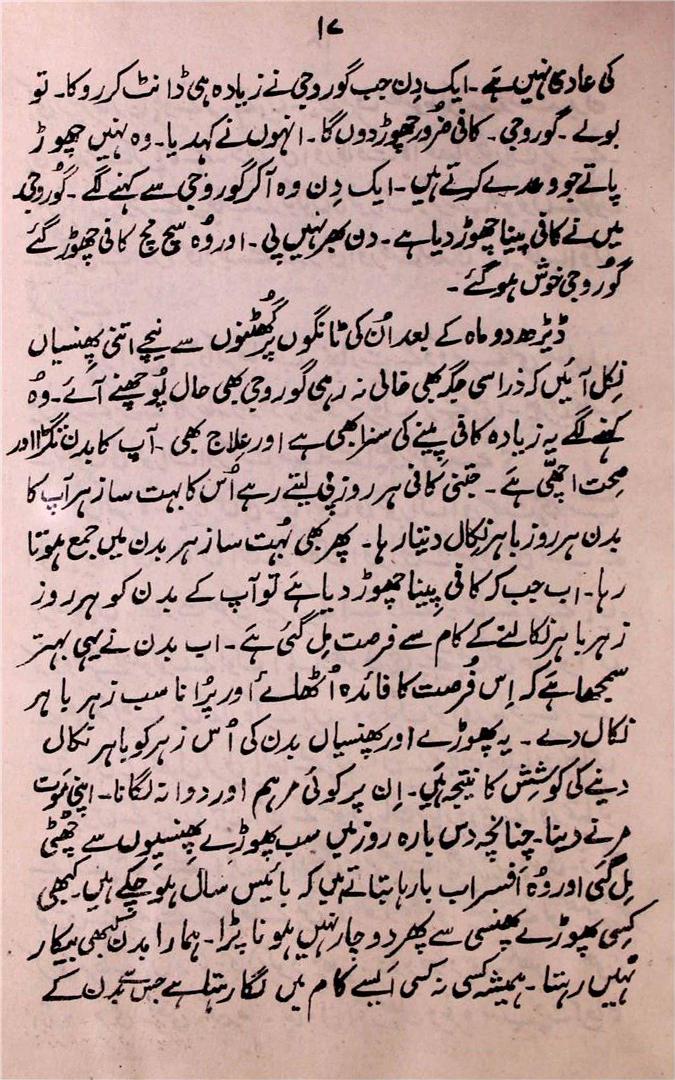 ۱۷
کی عادی نہیں ہے۔ ایک دِن جب گوروجی نے زیادہ ہی ڈانٹ کر روکا۔ تو
بولے۔ گوروجی۔ کافی ضُرور چھوڑ دوں گا۔ انہوں نے کہدیا۔ وہ نہیں چھوڑ
پاتے جو وعدے کرتے ہیں۔ ایک دِن وہ آکر گوروجی سے کہنے لگے۔ گوروجی۔
میں نے کافی پینا چھوڑ دیا ہے۔ دن بھر نہیں پی۔ اور وُہ سچ مچ کافی چھوڑ گئے
گوروجی خوش ہو گئے۔
ڈیڑھ دو ماہ کے بعد اُن کی ٹانگوں پر گھُٹنوں سے نیچے اتنی پھنسیاں
نِکل آئیں کہ ذرا سی جگہ بھی خالی نہ رہی گوروجی بھی حال پُوچھنے آئے۔ وُہ
کہنے لگے یہ زیادہ کافی پینے کی سزا بھی ہے اور عِلاج بھی۔ آپ کا بدن تگڑا اور
صحت اچھّی ہے۔ جتنی کافی ہر روز پی لیتے رہے اُس کا بہت سا زہر آپ کا
بدن ہر روز باہر نِکال دیتا رہا۔ پھر بھی بُہت سا زہر بدن میں جمع ہوتا
رہا۔ اب جب کہ کافی پِینا چھوڑ دیا ہے تو آپ کے بدن کو ہر روز
زہر باہر نکالنے کے کام سے فرصت مِل گئی ہے۔ اب بدن نے یہی بہتر
سمجھا ہے کہ اِس فُرصت کا فائدہ اُٹھائے اور پرُانا سب زہر باہر
نکال دے۔ یہ پھوڑے اور پھنسیاں بدن کی اُس زہر کو باہر نکال
دینے کی کوشِش کا نتیجہ ہیں۔ اِن پر کوئی مرہم اور دوا نہ لگانا۔ اپنی مَوت
مرنے دینا۔ چنانچہ دس بارہ روز میں سب پھوڑے پھنسیوں سے چھُٹّی
مِل گئی اور وُہ اَفسر اب بارہا بتاتے ہیں کہ بائیس سال ہو چکے ہیں۔ کبھی
کِسی پھوڑے پھنسی سے پھر دوچار نہیں ہونا پڑا۔ ہمارا بدن کبھی بیکار
نہیں رہتا۔ ہمیشہ کسی نہ کسی اَیسے کام میں لگا رہتا ہے جس سے بدن کے